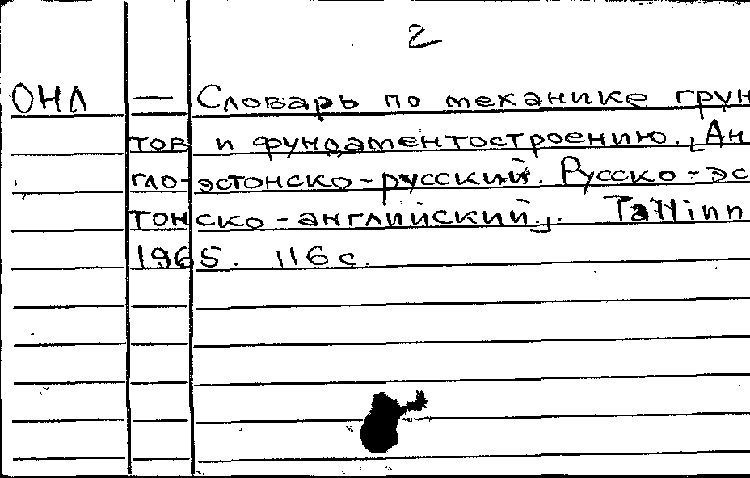 2
ОНЛ — Словарь по механике грун
тов и фундаментостроению. [Ан
гло-эстонско-русский. Русско-эс
тонско-английский]. Tallinn
1965. 116 с.